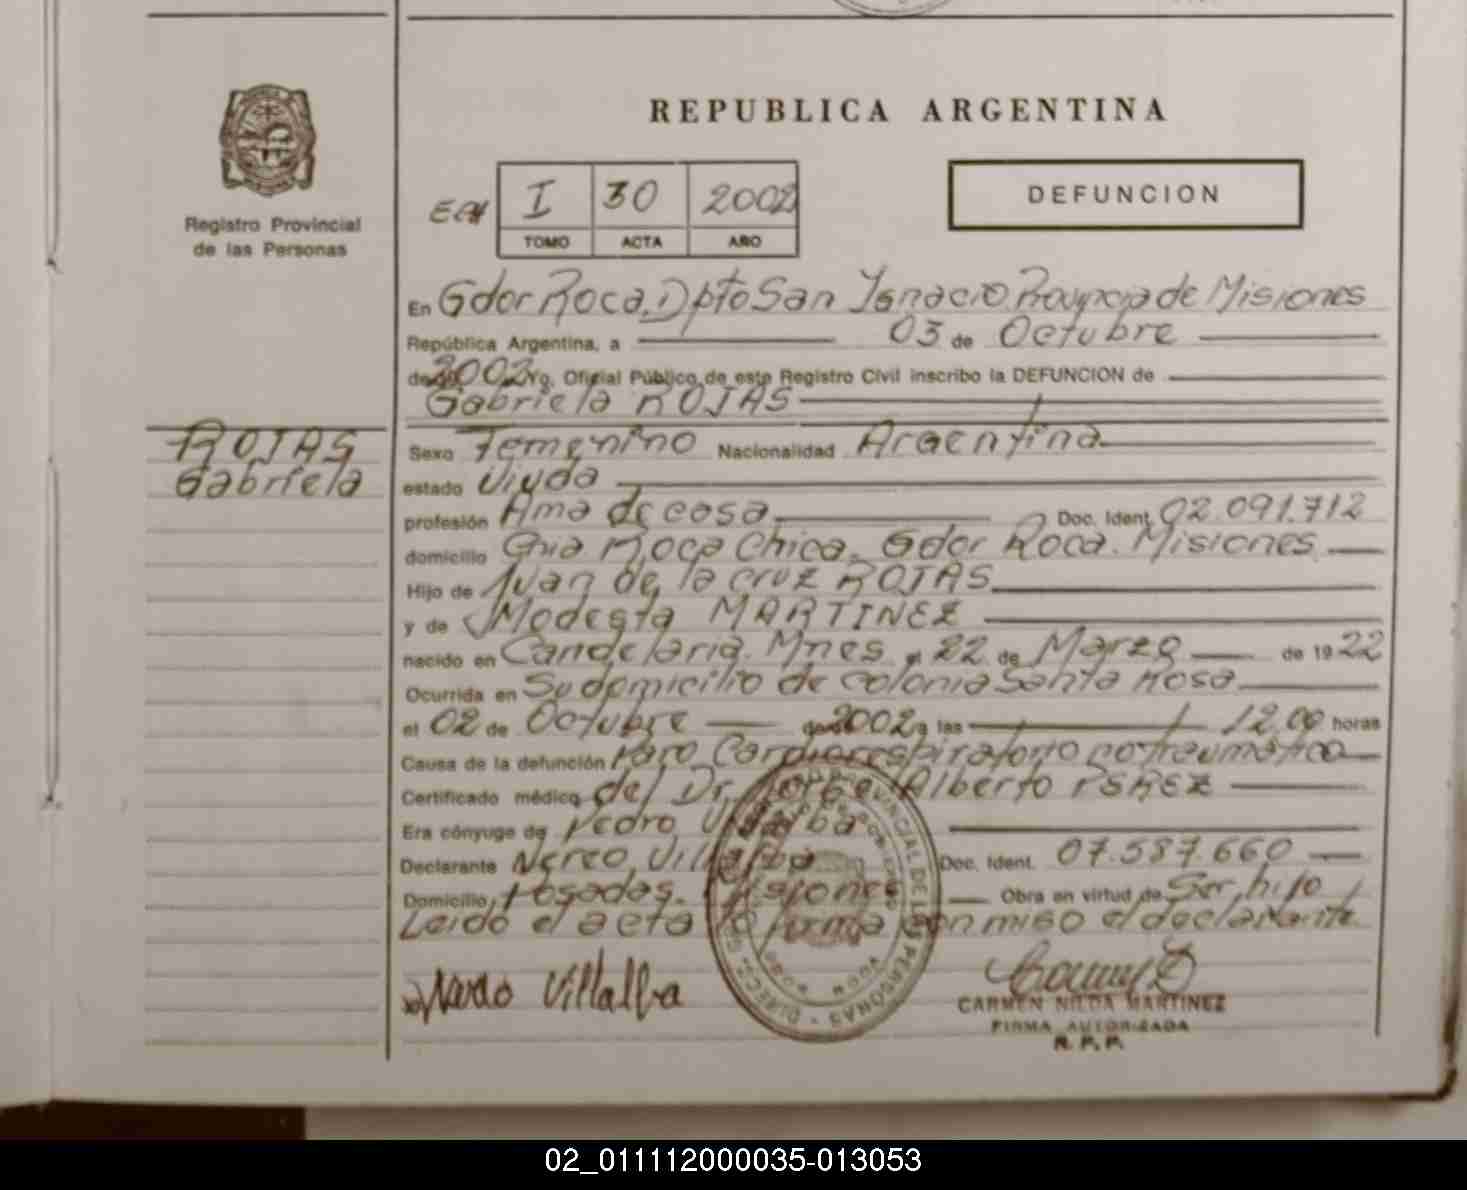 REPUBLICA ARGENTINA
Registro Provincial
de las Personas
I 30 2002
TOMO ACTA AÑO
DEFUNCION
En Gdor Roca, Dpto San Ignacio, Provincia de Misiones
República Argentina, a 03 de Octubre
de 2002 Yo, Oficial Público de este Registro Civil inscribo la DEFUNCION de
Gabriela ROJAS
ROJAS
Gabriela
Sexo Femenino Nacionalidad Argentina
estado Viuda
profesión Ama de casa Doc. Ident. 02.091.712
domicilio Cnia Roca Chica. Gdor Roca. Misiones
Hijo de Juan de la cruz ROJAS
y de Modesta MARTINEZ
nacido en Candelaria. Mnes el 22 de Marzo de 1922
Ocurrida en Su domicilio de colonia Santa Rosa
el 02 de Octubre de 2002 a las 12,00 horas
Causa de la defunción Paro Cardiorrespiratorio no traumatico
Certificado médico del Dr. Jorge Alberto PEREZ
Era cónyuge de Pedro Villalba
Declarante Nereo Villalba Doc. Ident. 07.587.660
Domicilio Posadas. Misiones Obra en virtud de Ser hijo
Leido el acta la firma conmigo el declarante
Villalba
CARMEN NILDA MARTINEZ
FIRMA AUTORIZADA
R. P. P.
02_011112000035-013053